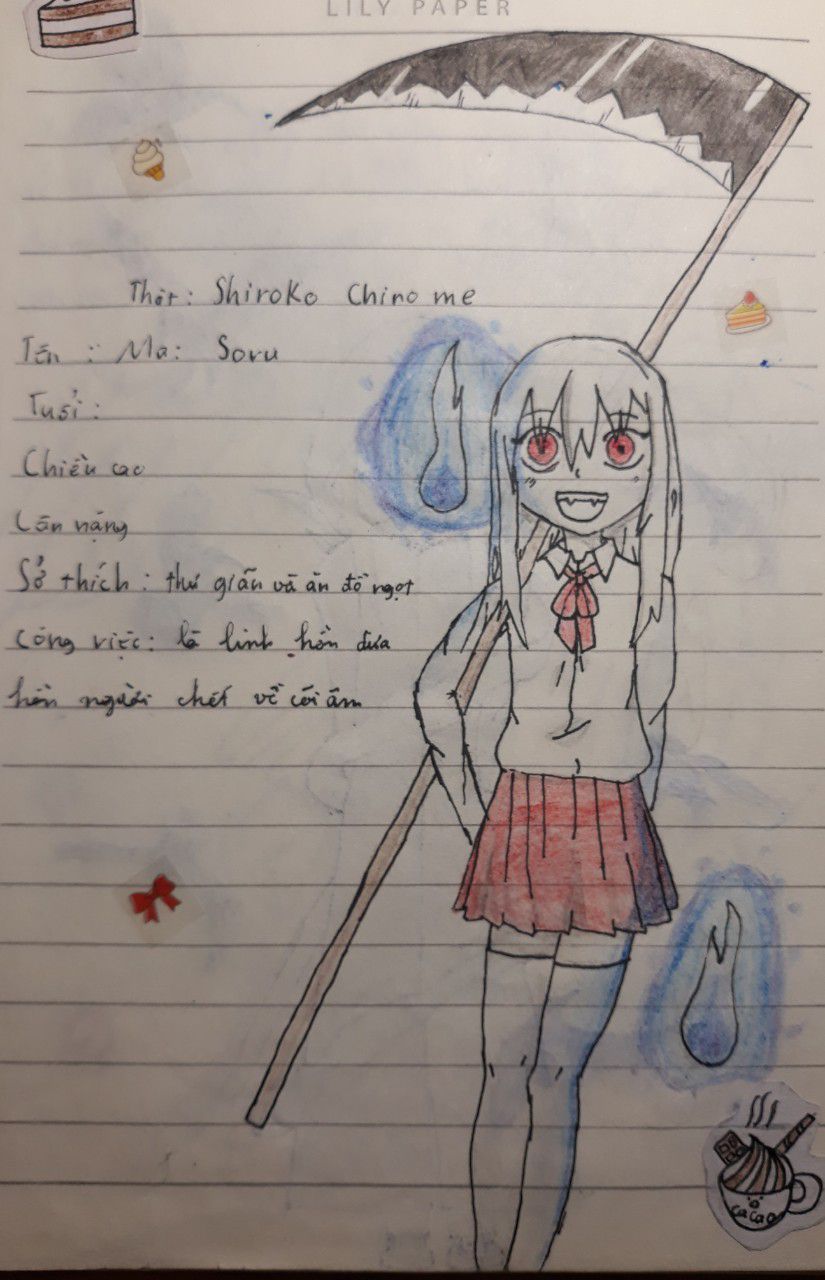 LILY PAPER
Thật: Shiroko Chino me
Tên : Ma: Soru
Tuổi :
Chiều cao
Cân nặng
Sở thích : thư giãn và ăn đồ ngọt
Công việc: là linh hồn đưa
hồn người chết về cõi âm
cacao